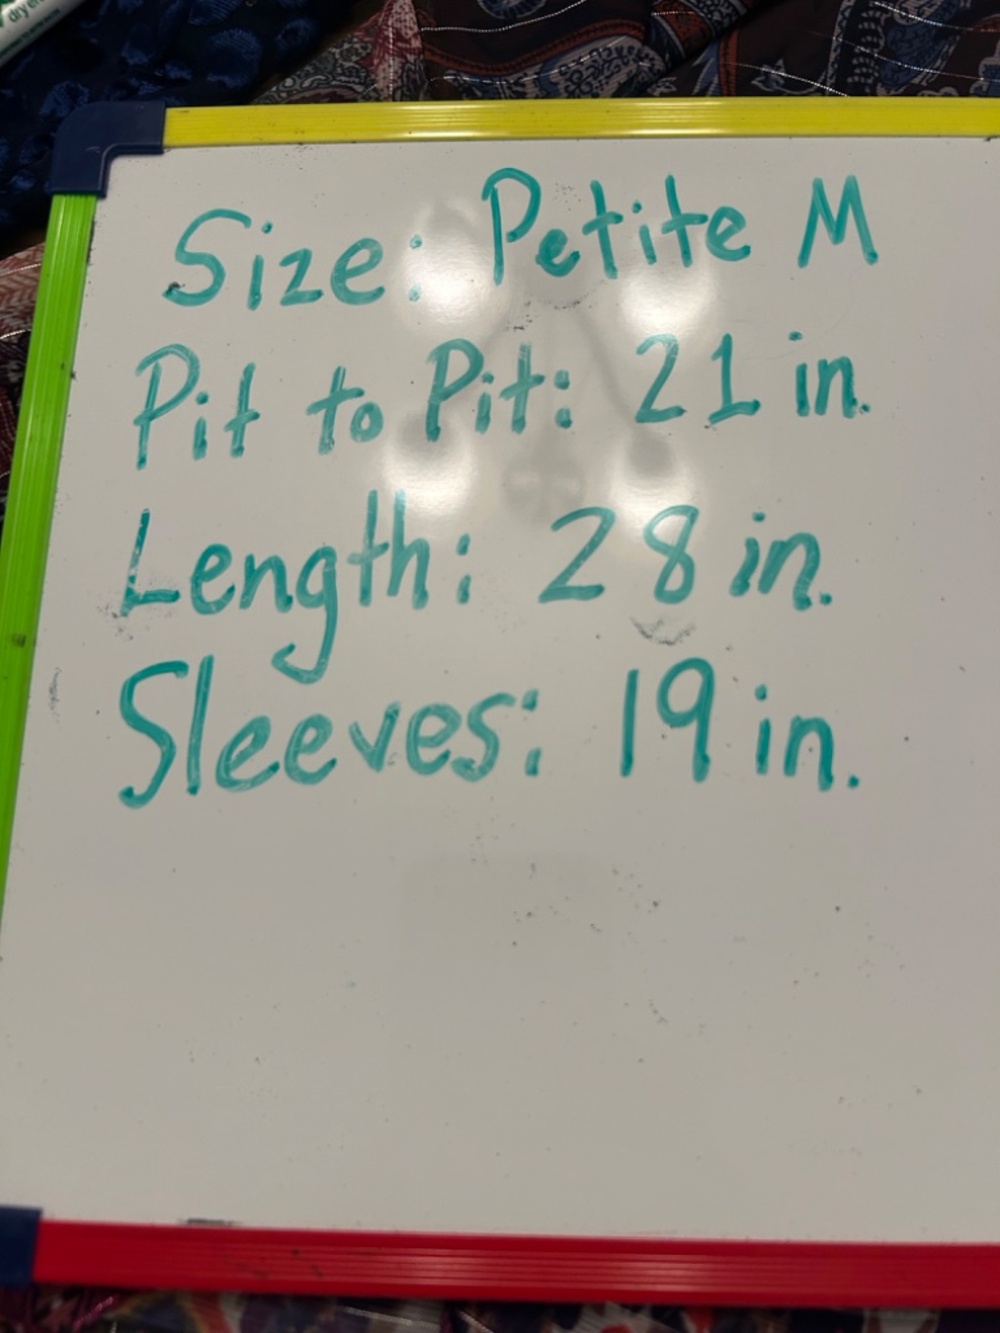 dry er
Size: Petite M
Pit to Pit: 21 in.
Length: 28 in.
Sleeves: 19 in.